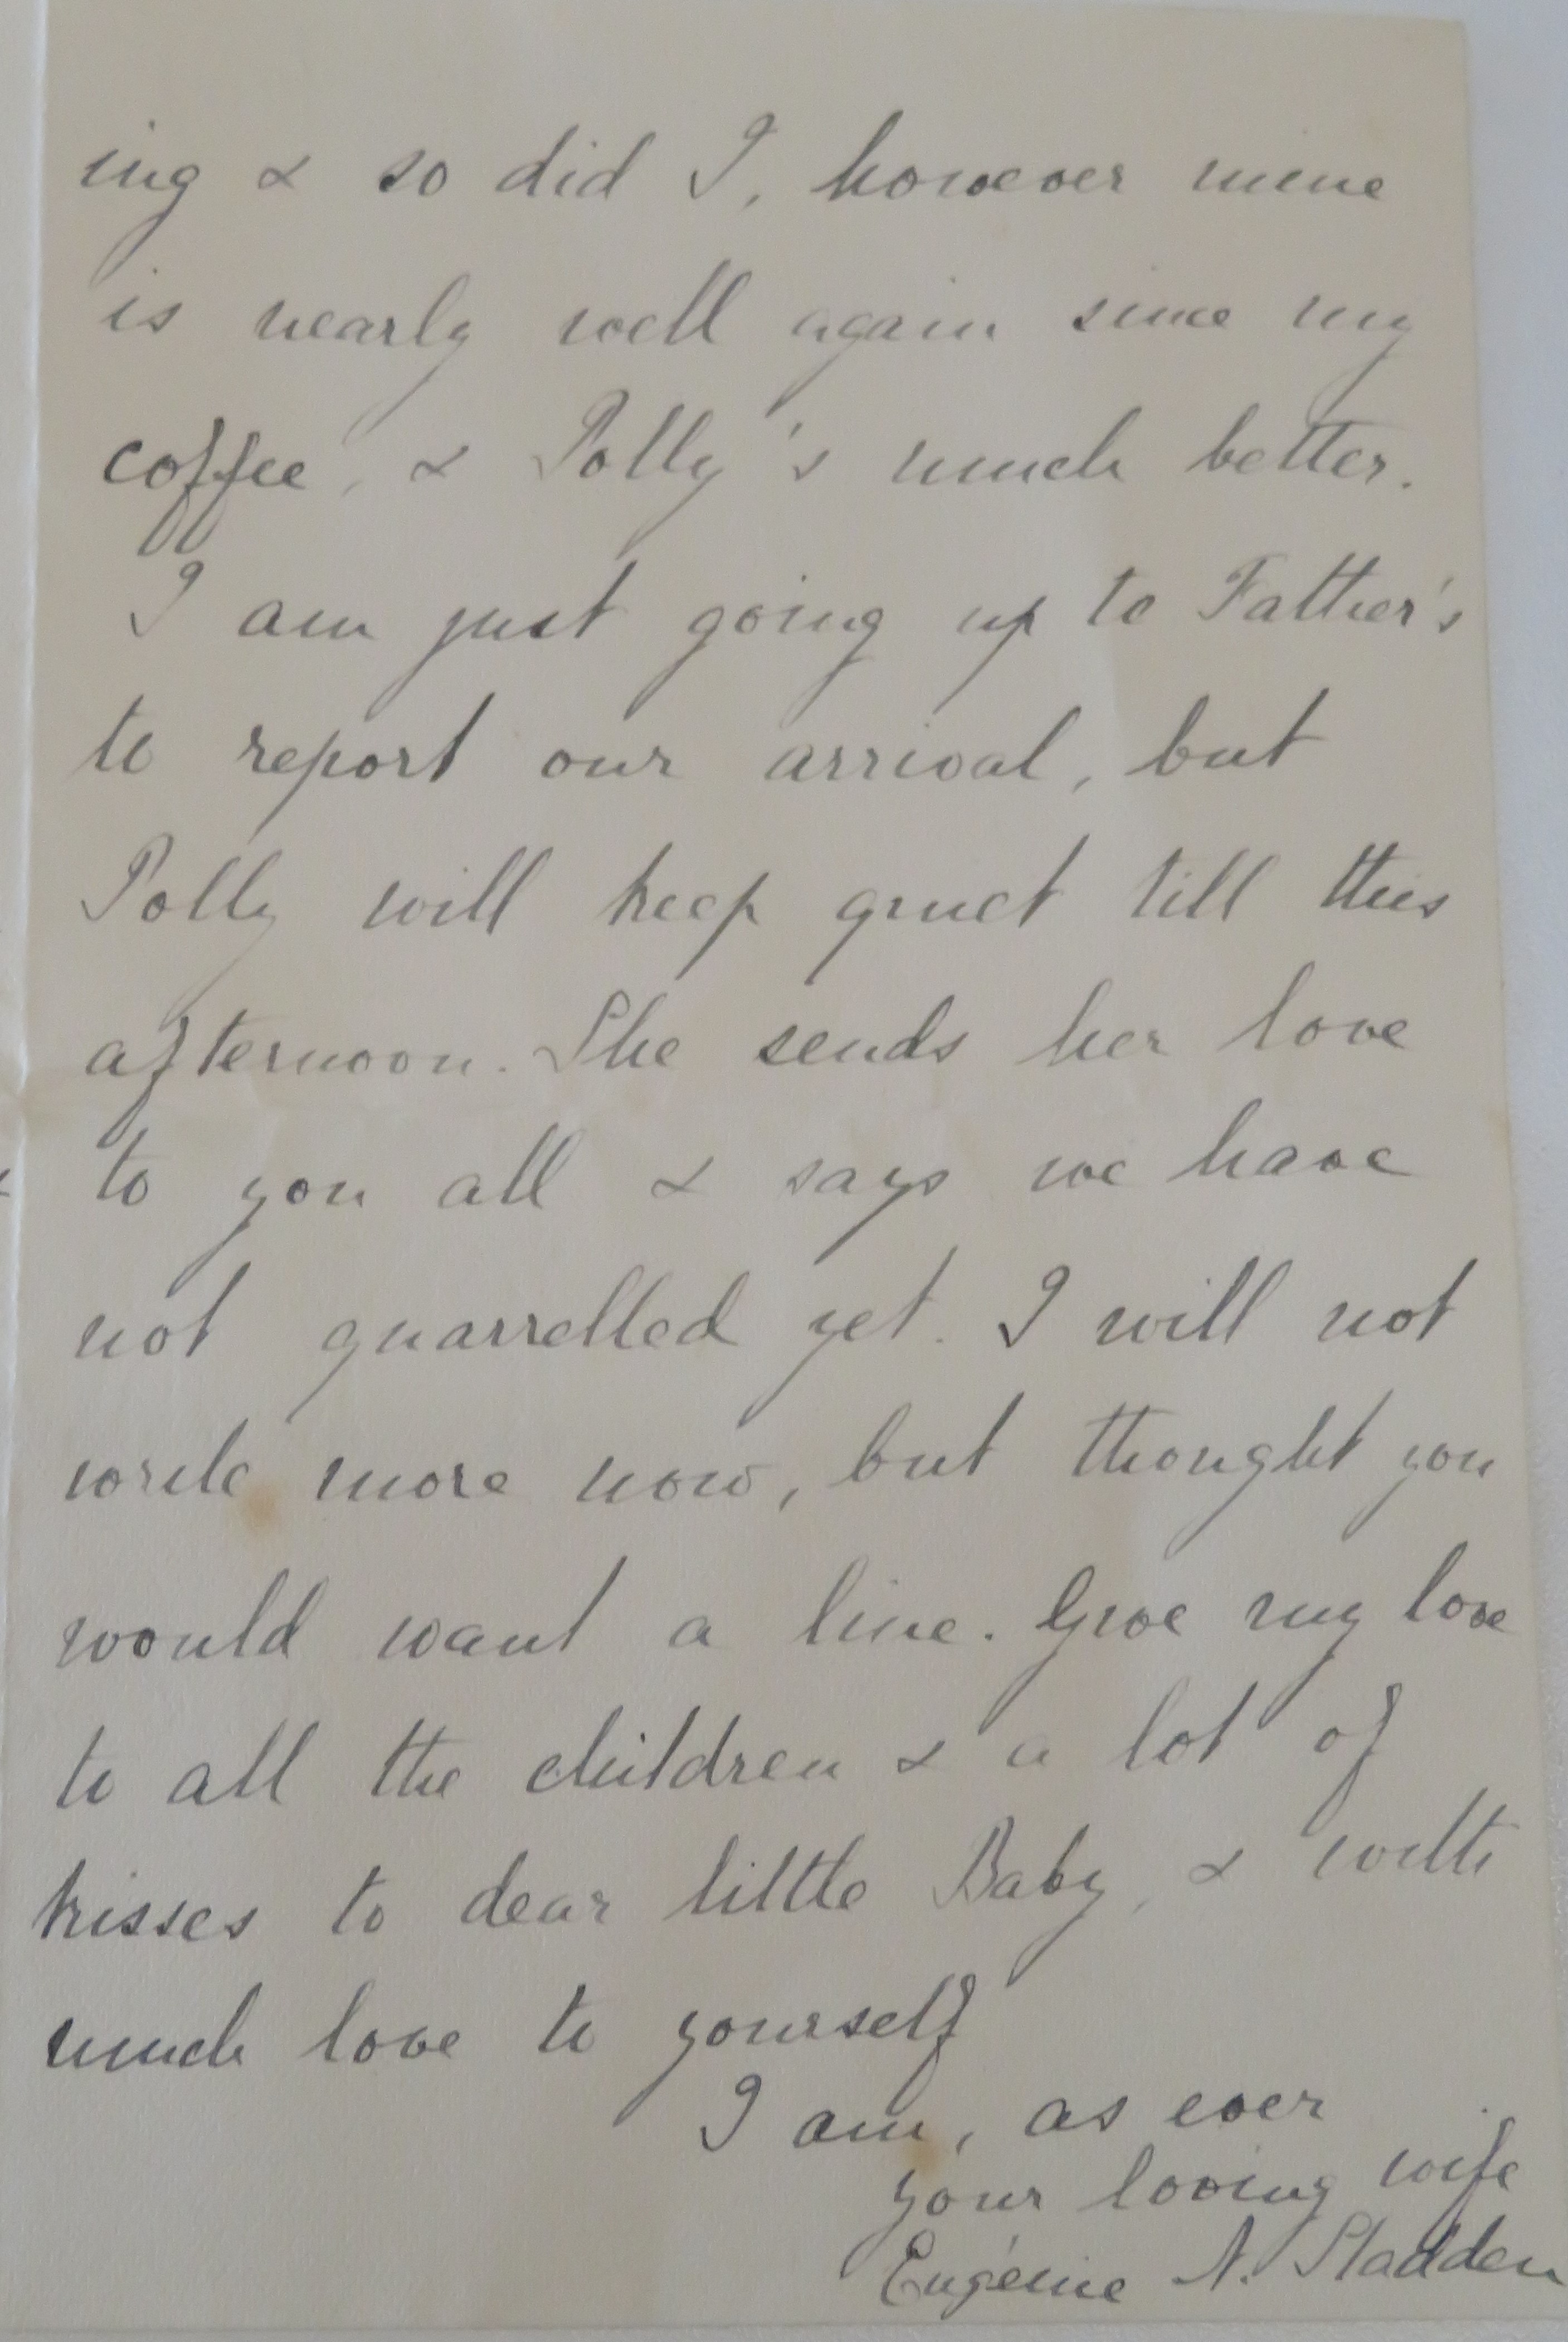 ing & so did I, however mine
is nearly well again since my
coffee, & Polly's much better.
I am just going up to Father's
to report our arrival, but
Polly will keep quiet till this
afternoon. She sends her love
to you all & says we have
not quarrelled yet. I will not
write more now, but thought you
would want a line. Give my love
to all the children & a lot of
kisses to dear little Baby, & with
much love to yourself
I am, as ever
your loving wife
Eugénie N. Sladden